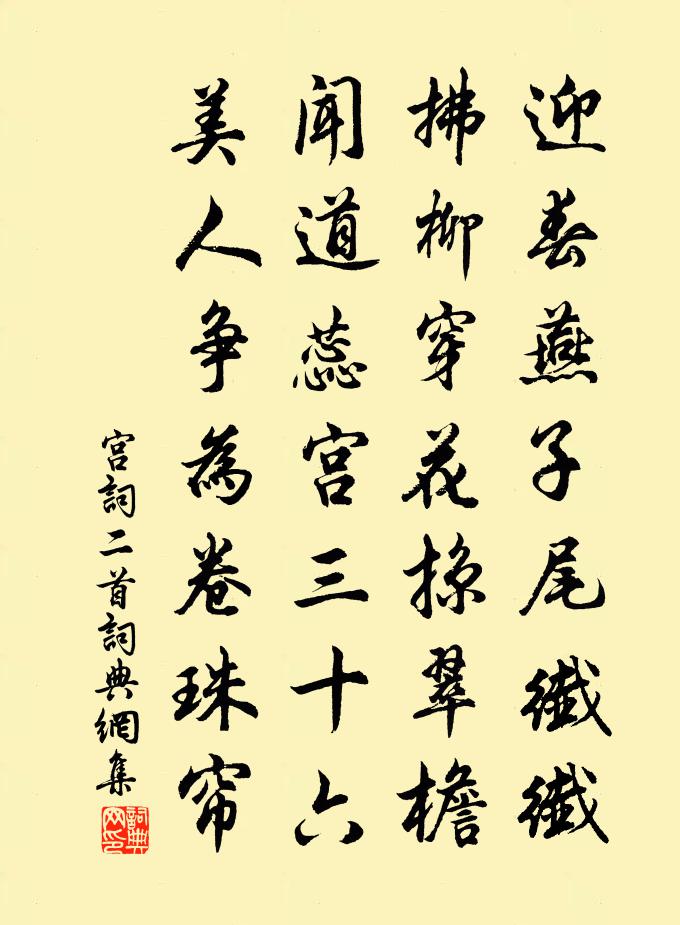 迎春燕子尾纖纖
拂柳穿花掠翠檐
闻道蕊宫三十六
美人争為卷珠帘
宫詞二首詞典網集
詞典网印